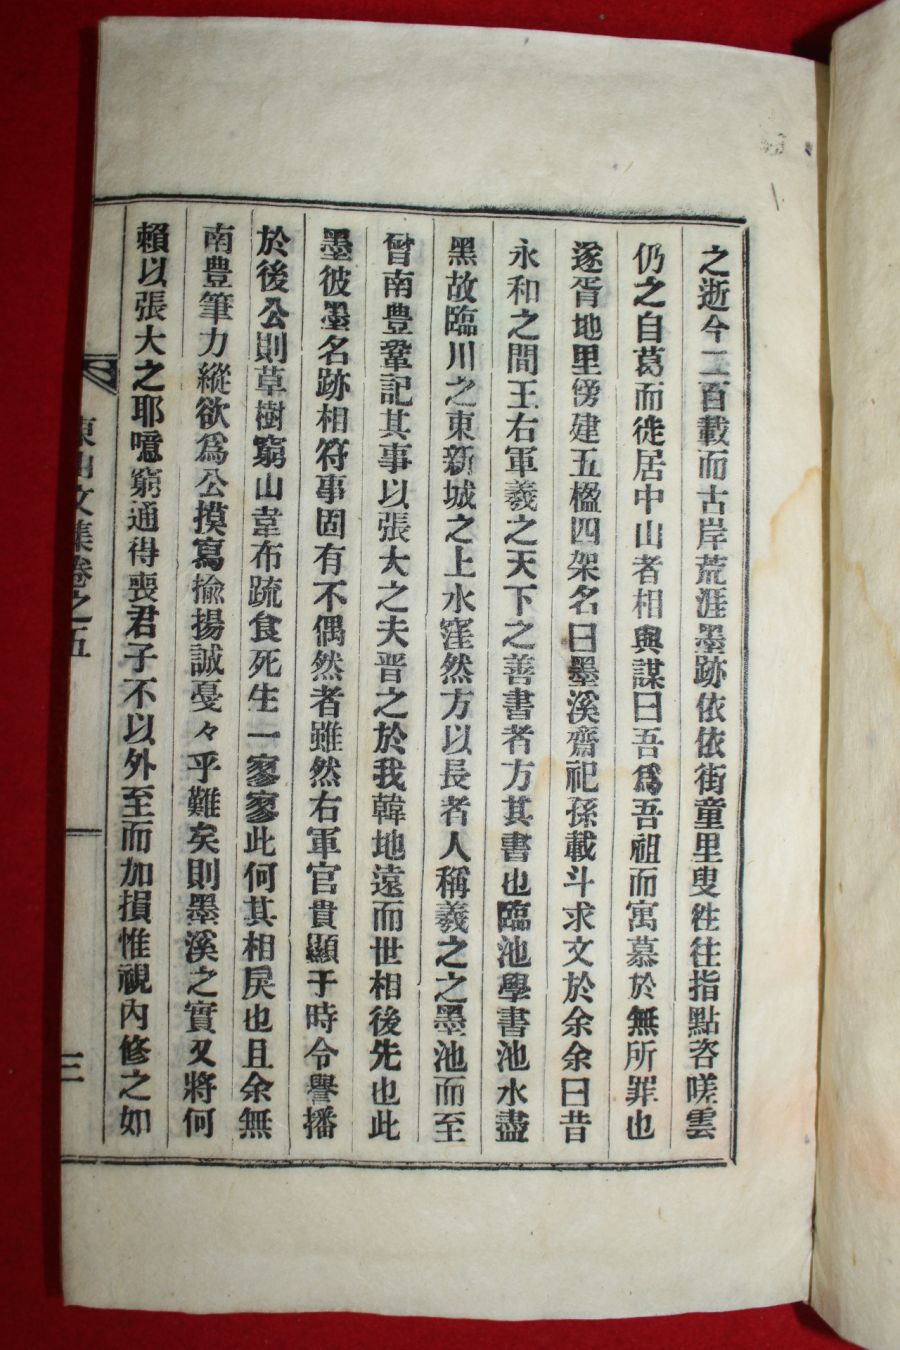 之逝今二百載而古岸荒涯墨跡依依街童里叟徃往指點咨嗟雲
仍之自葛而徙居中山者相與謀曰吾爲吾祖而寓慕於無所罪也
遂胥地里傍建五楹四架名曰墨溪齋祀孫載斗求文於余余曰昔
永和之間王右軍羲之天下之善書者方其書也臨池學書池水盡
黑故臨川之東新城之上水窪然方以長者人稱羲之之墨池而至
曾南豊鞏記其事以張大之夫晋之於我韓地遠而世相後先也此
墨彼墨名跡相符事固有不偶然者雖然右軍官貴顯于時令譽播
於後公則草樹窮山韋布疏食死生一寥寥此何其相戾也且余無
南豊筆力縱欲爲公摸寫揄揚誠戞々乎難矣則墨溪之實又將何
賴以張大之耶噫窮通得喪君子不以外至而加損惟視內修之如
文集卷之五
三